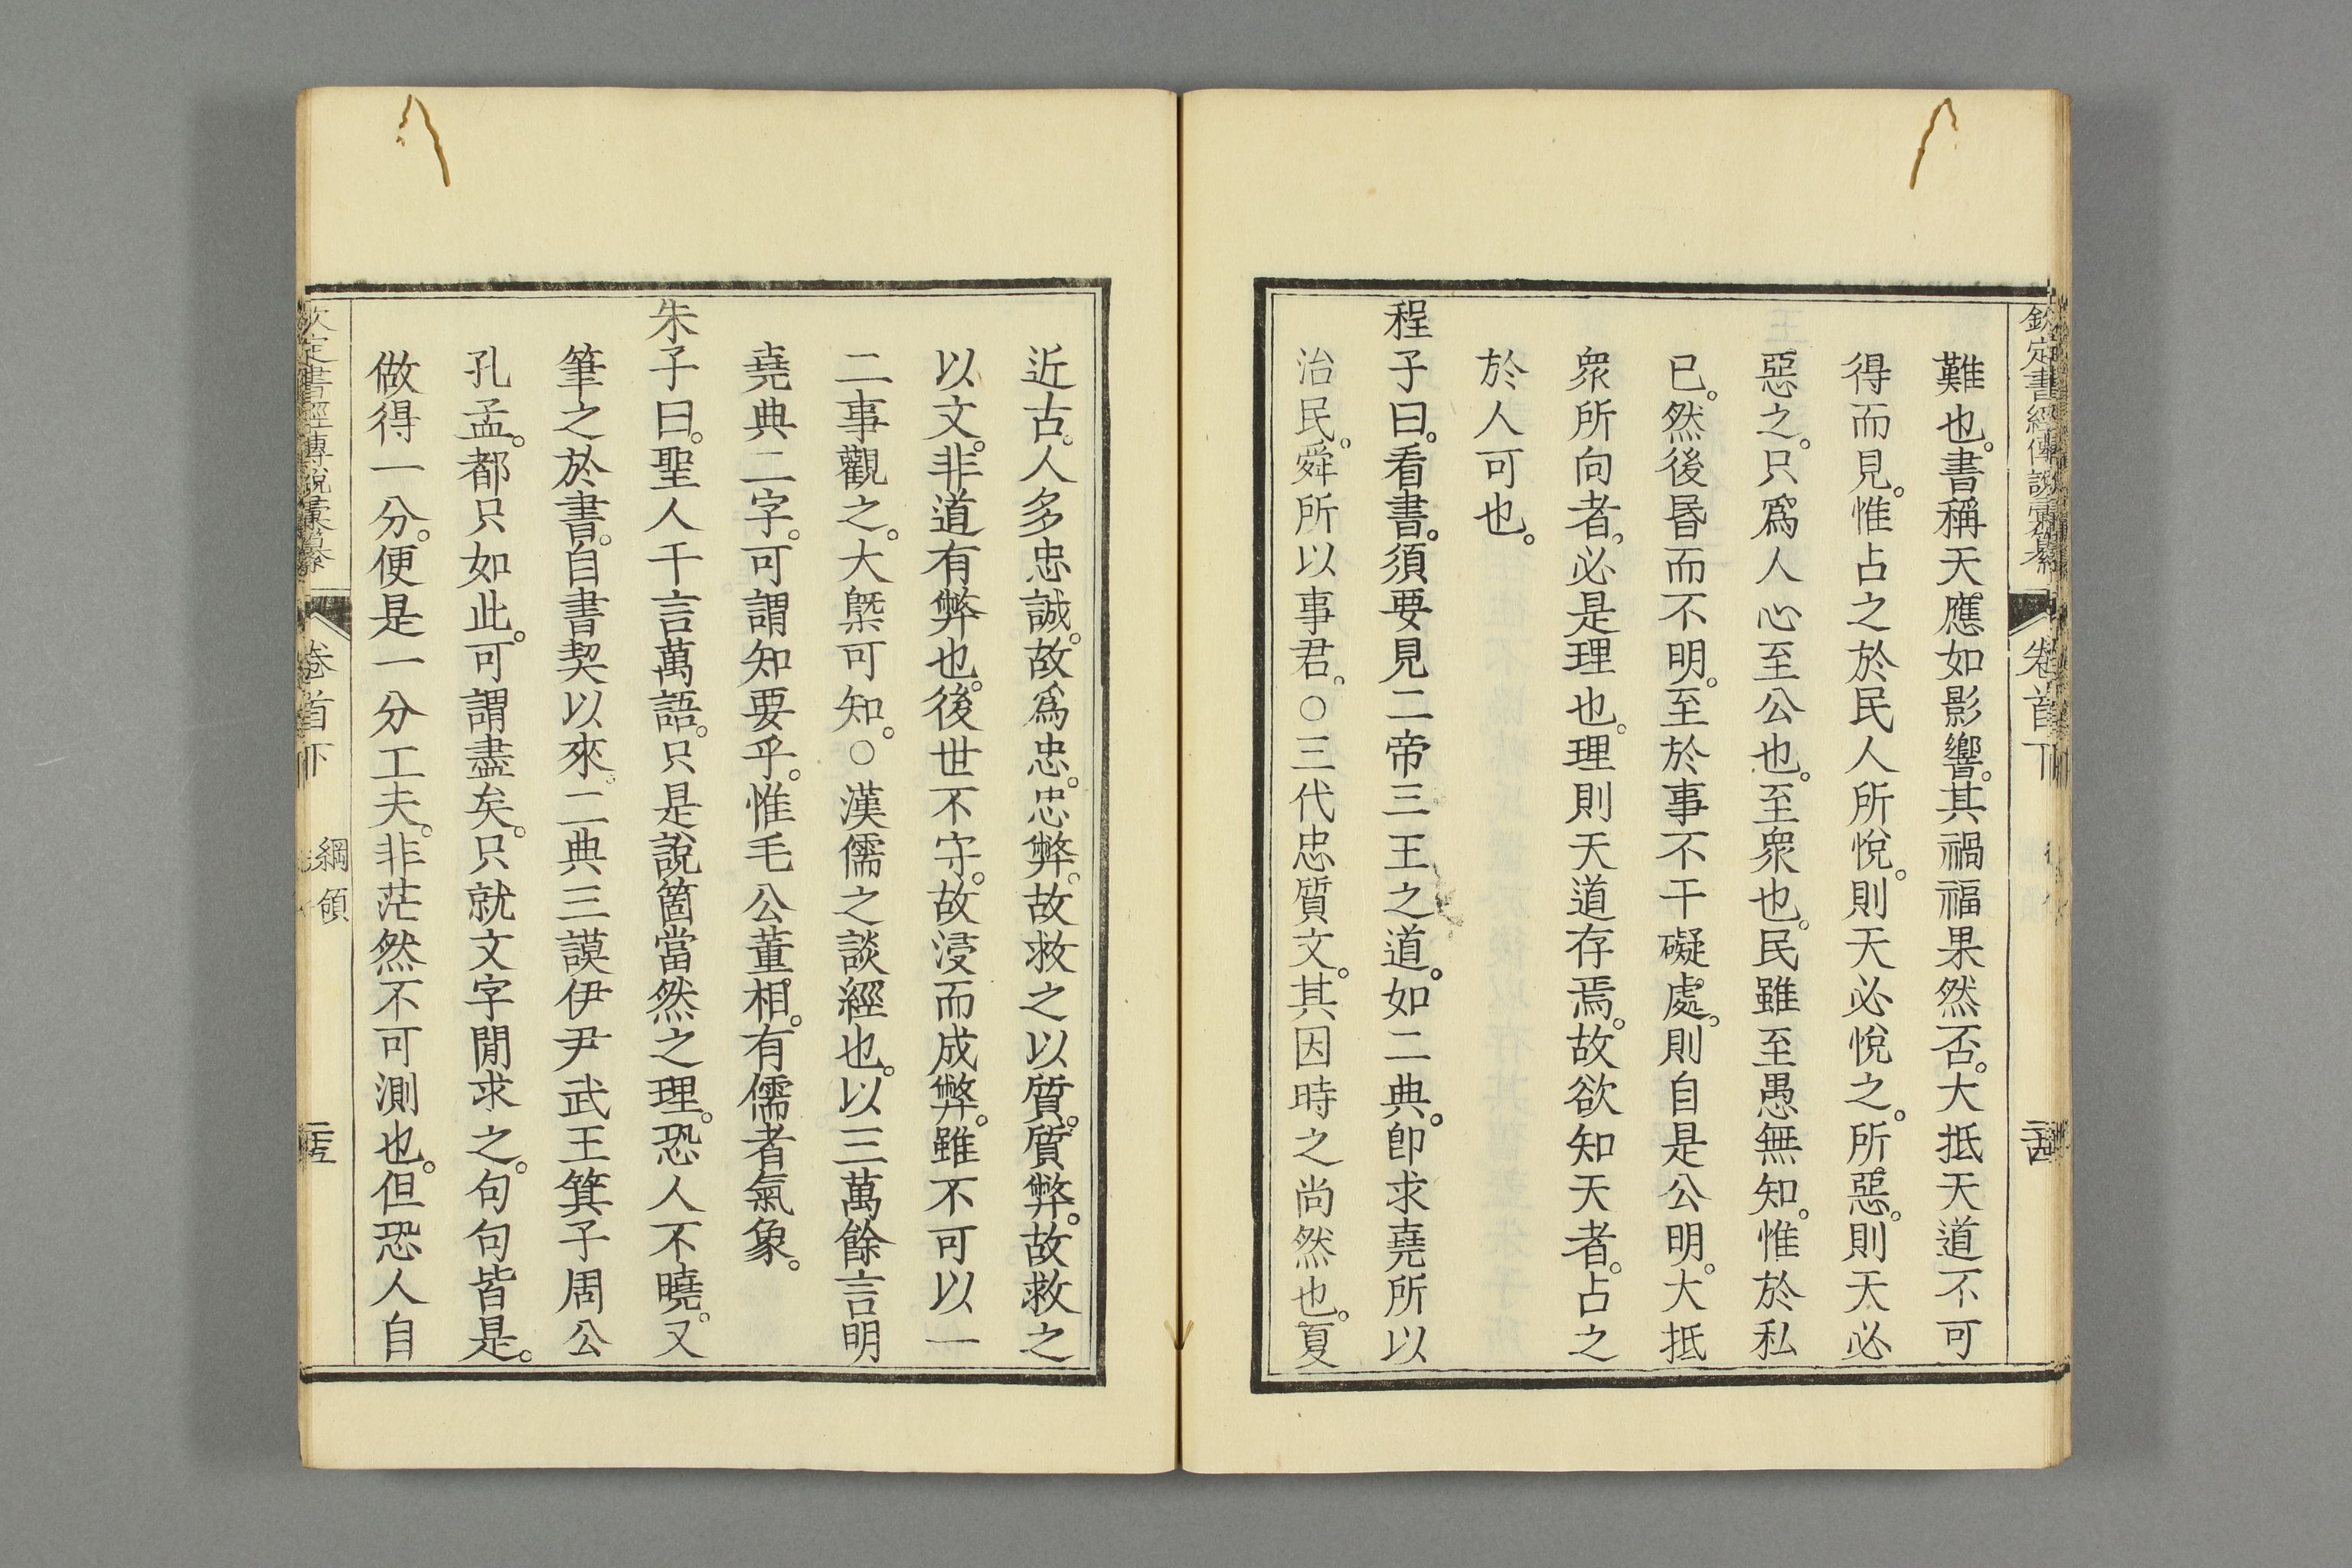 欽定書經傳說彙纂 卷首下 二十四
難也。書稱天應如影響。其禍福果然否。大抵天道不可
得而見。惟占之於民人所悅。則天必悅之。所惡。則天必
惡之。只爲人心至公也。至衆也。民雖至愚無知。惟於私
已。然後昬而不明。至於事不干礙處。則自是公明。大抵
衆所向者。必是理也。理則天道存焉。故欲知天者。占之
於人可也。
程子曰。看書。須要見二帝三王之道。如二典。卽求堯所以
治民。舜所以事君。○三代忠質文。其因時之尚然也。夏
近古。人多忠誠。故爲忠。忠弊。故救之以質。質弊。故救之
以文。非道有弊也。後世不守。故浸而成弊。雖不可以一
二事觀之。大槩可知。○漢儒之談經也。以三萬餘言明
堯典二字。可謂知要乎。惟毛公董相。有儒者氣象。
朱子曰。聖人千言萬語。只是說箇當然之理。恐人不曉。又
筆之於書。自書契以來。二典三謨伊尹武王箕子周公
孔孟。都只如此。可謂盡矣。只就文字閒求之。句句皆是。
做得一分。便是一分工夫。非茫然不可測也。但恐人自
欽定書經傳說彙纂 卷首下 綱領 二十五